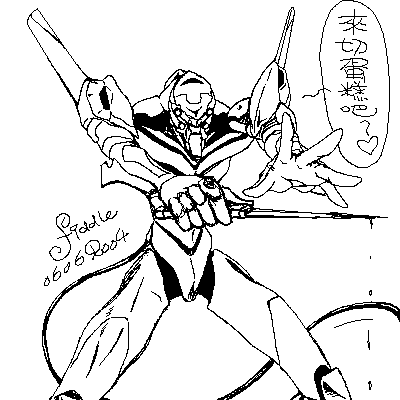 來切蛋糕吧~♡
Fiddle
0606 2004